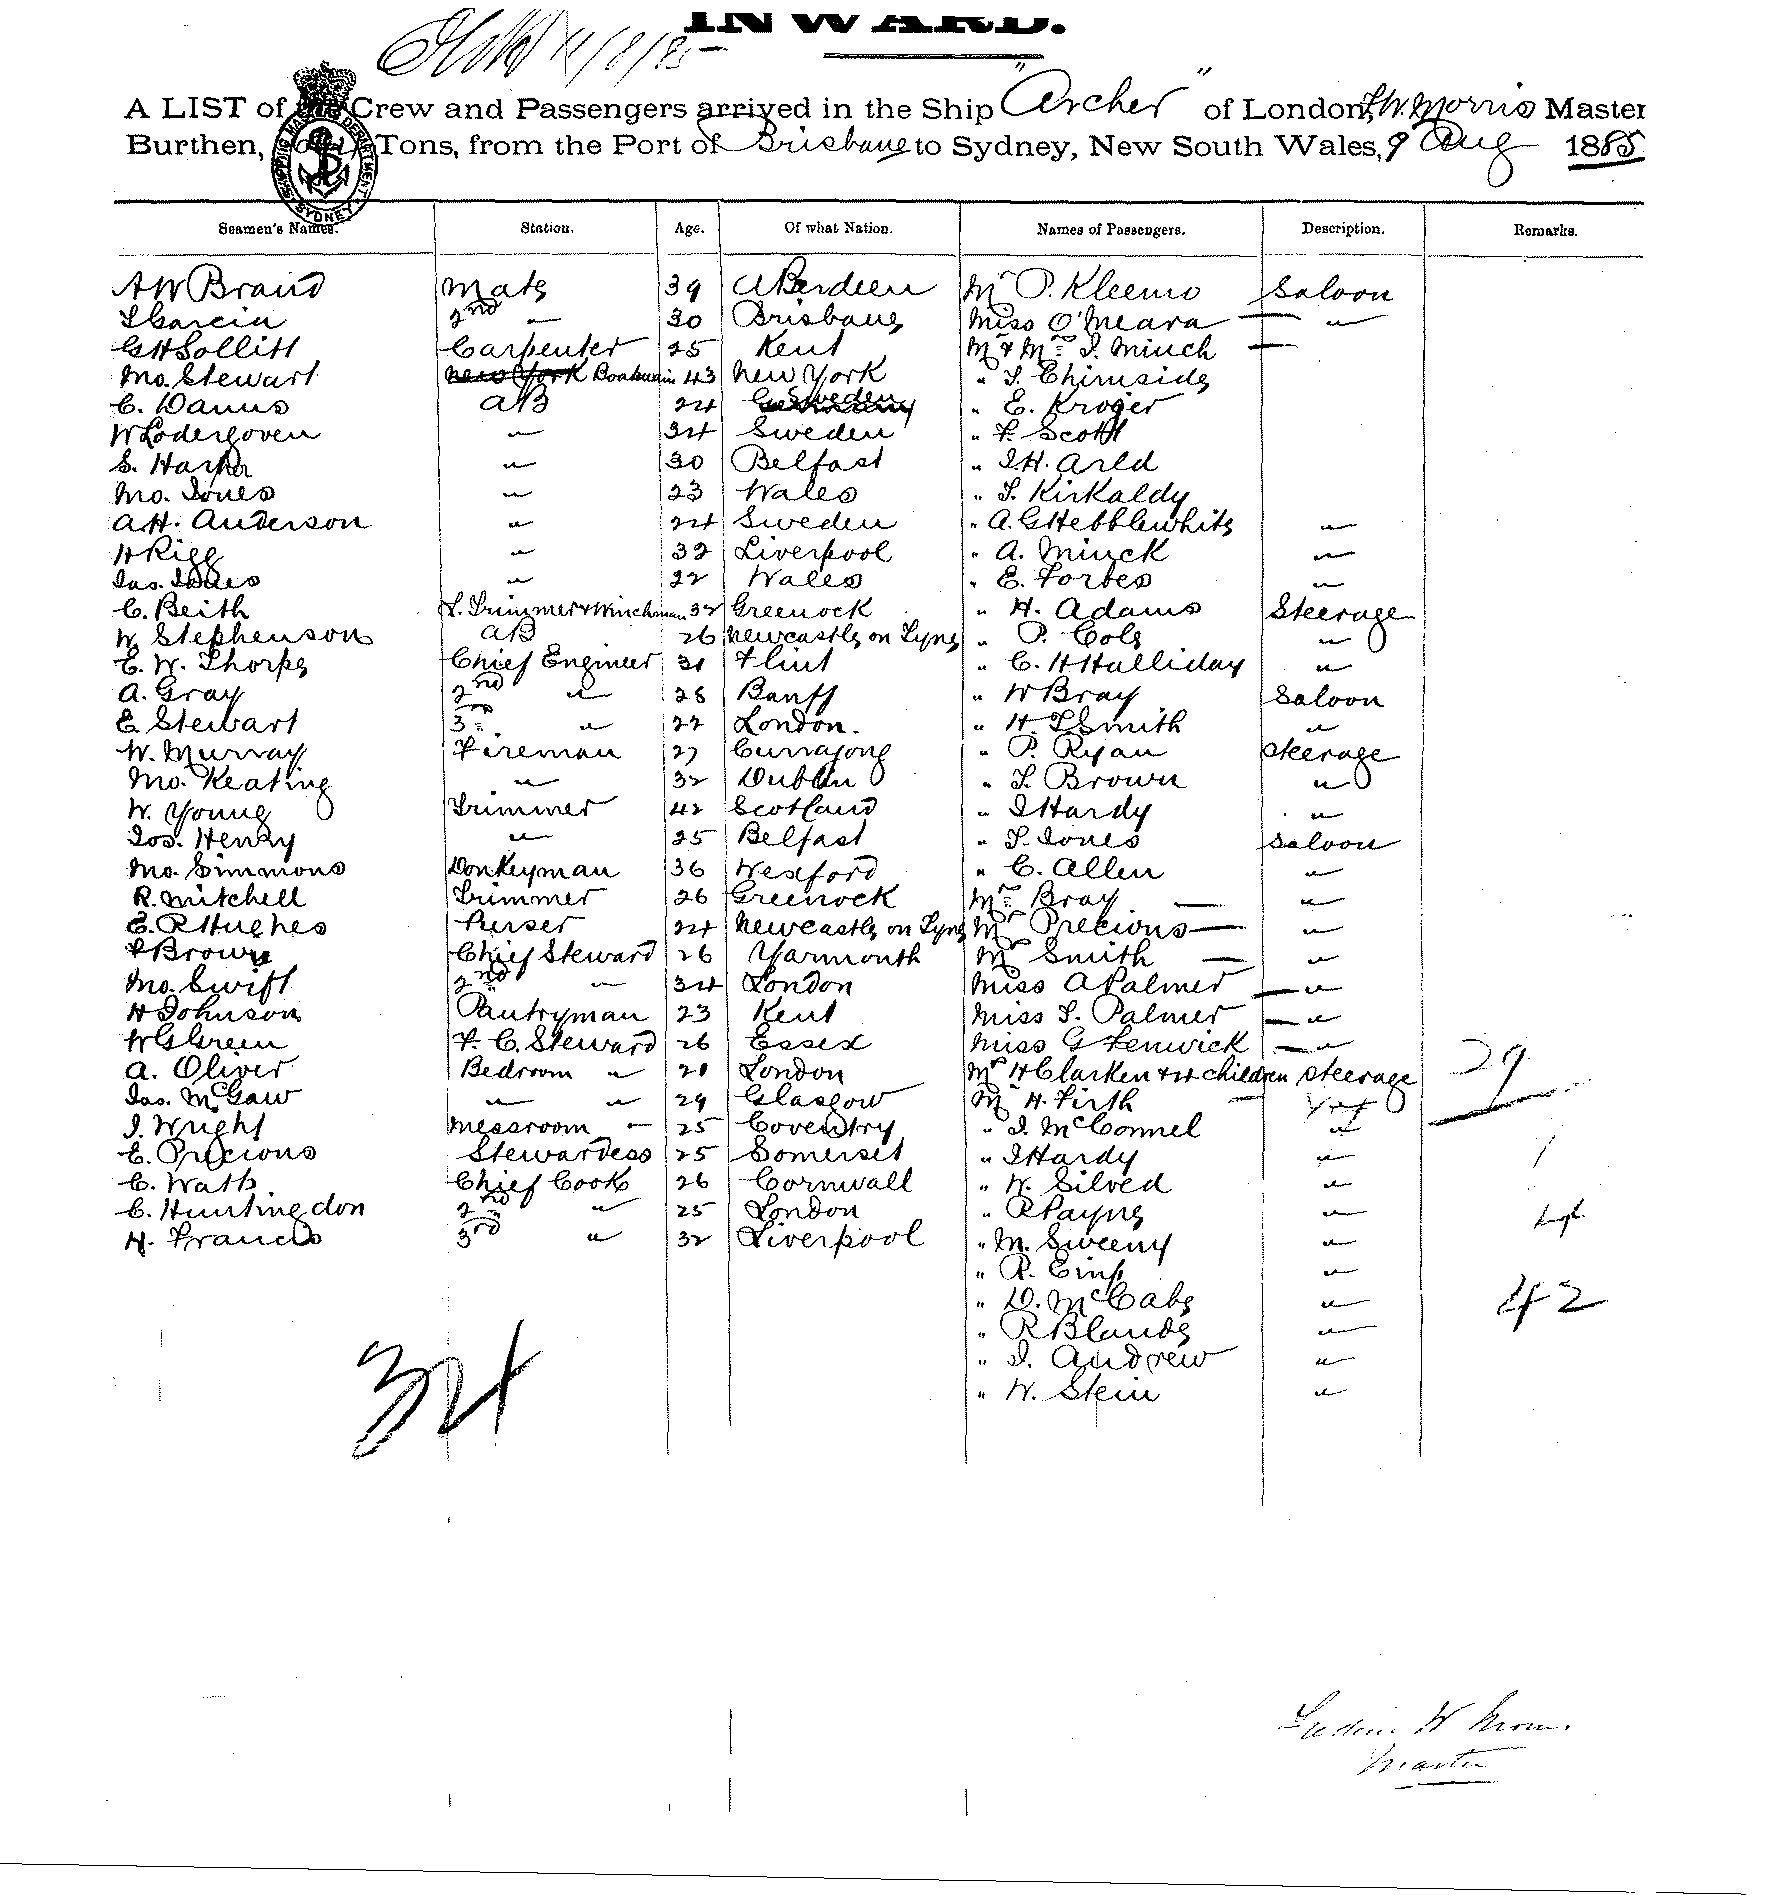 INWARD.
11/8/85
A LIST of the Crew and Passengers arrived in the Ship "Archer" of London, L W. Morris Master
Burthen, Tons, from the Port of Brisbane to Sydney, New South Wales, 9 Aug 1885
SHIPPING MASTER'S DEPARTMENT SYDNEY
Seamen's Names. Station. Age. Of what Nation. Names of Passengers. Description. Remarks.
A W Brand Mate 39 Aberdeen Mr P. Kleemo Saloon
J Garcin 2nd " 30 Brisbane Miss O'Meara — "
G H Sollitt Carpenter 25 Kent Mr & Mrs J. Minch —
Mo. Stewart New York Boatswain 43 New York " J. Chirnside
C. Danus AB 24 Germany Sweden " E. Kroger
W Lodergoven " 34 Sweden " F. Scott
S. Harper " 30 Belfast " J H. Arld
Mo. Jones " 23 Wales " J. Kirkaldy
A. H. Anderson " 24 Sweden " A. G Hebblewhite "
H Rigg " 32 Liverpool " A. Minck "
Jas. Jones " 22 Wales " E. Forbes "
C. Beith L. Trimmer & Winchman 32 Greenock " H. Adams Steerage
W Stephenson AB 26 Newcastle on Tyne " P. Cole "
E. W. Thorpe Chief Engineer 31 Flint " C. H Halliday "
A. Gray 2nd " 28 Banff " W Bray Saloon
E Stewart 3rd " 22 London. " H. T Smith "
W. Murray Fireman 27 Currajong " P. Ryan Steerage
Mo. Keating " 32 Dublin " T. Brown "
W. Young Trimmer 42 Scotland " J Hardy "
Jos. Henry " 25 Belfast " T. Jones Saloon
Mo. Simmons Donkeyman 36 Wexford " C. Allen "
R. Mitchell Trimmer 26 Greenock Mrs Bray — "
E. R Hughes Purser 24 Newcastle on Tyne Mr Precious — "
F Brown Chief Steward 26 Yarmouth Mr Smith — "
Mo. Swift 2nd " 34 London Miss A Palmer — "
H Johnson Pantryman 23 Kent Miss T. Palmer — "
W G Green F. C. Steward 26 Essex Miss G Fenwick — "
A. Oliver Bedroom " 20 London Mrs H Clarken & 4 children Steerage 29
Jas. McGaw " " 29 Glasgow Mr H. Firth —
J. Wright Messroom " 25 Coventry " J. McConnel "
E. Precious Stewardess 25 Somerset " J Hardy " 1
C. Watts Chief Cook 26 Cornwall " W. Silved "
C. Huntingdon 2nd " 25 London " R Payne " 4
H. Francis 3rd " 32 Liverpool " M. Sweeny "
" R. Eins "
" D. McCabe " 42
" R Blande "
" J. Andrew "
" W. Stein "
34
W
Master